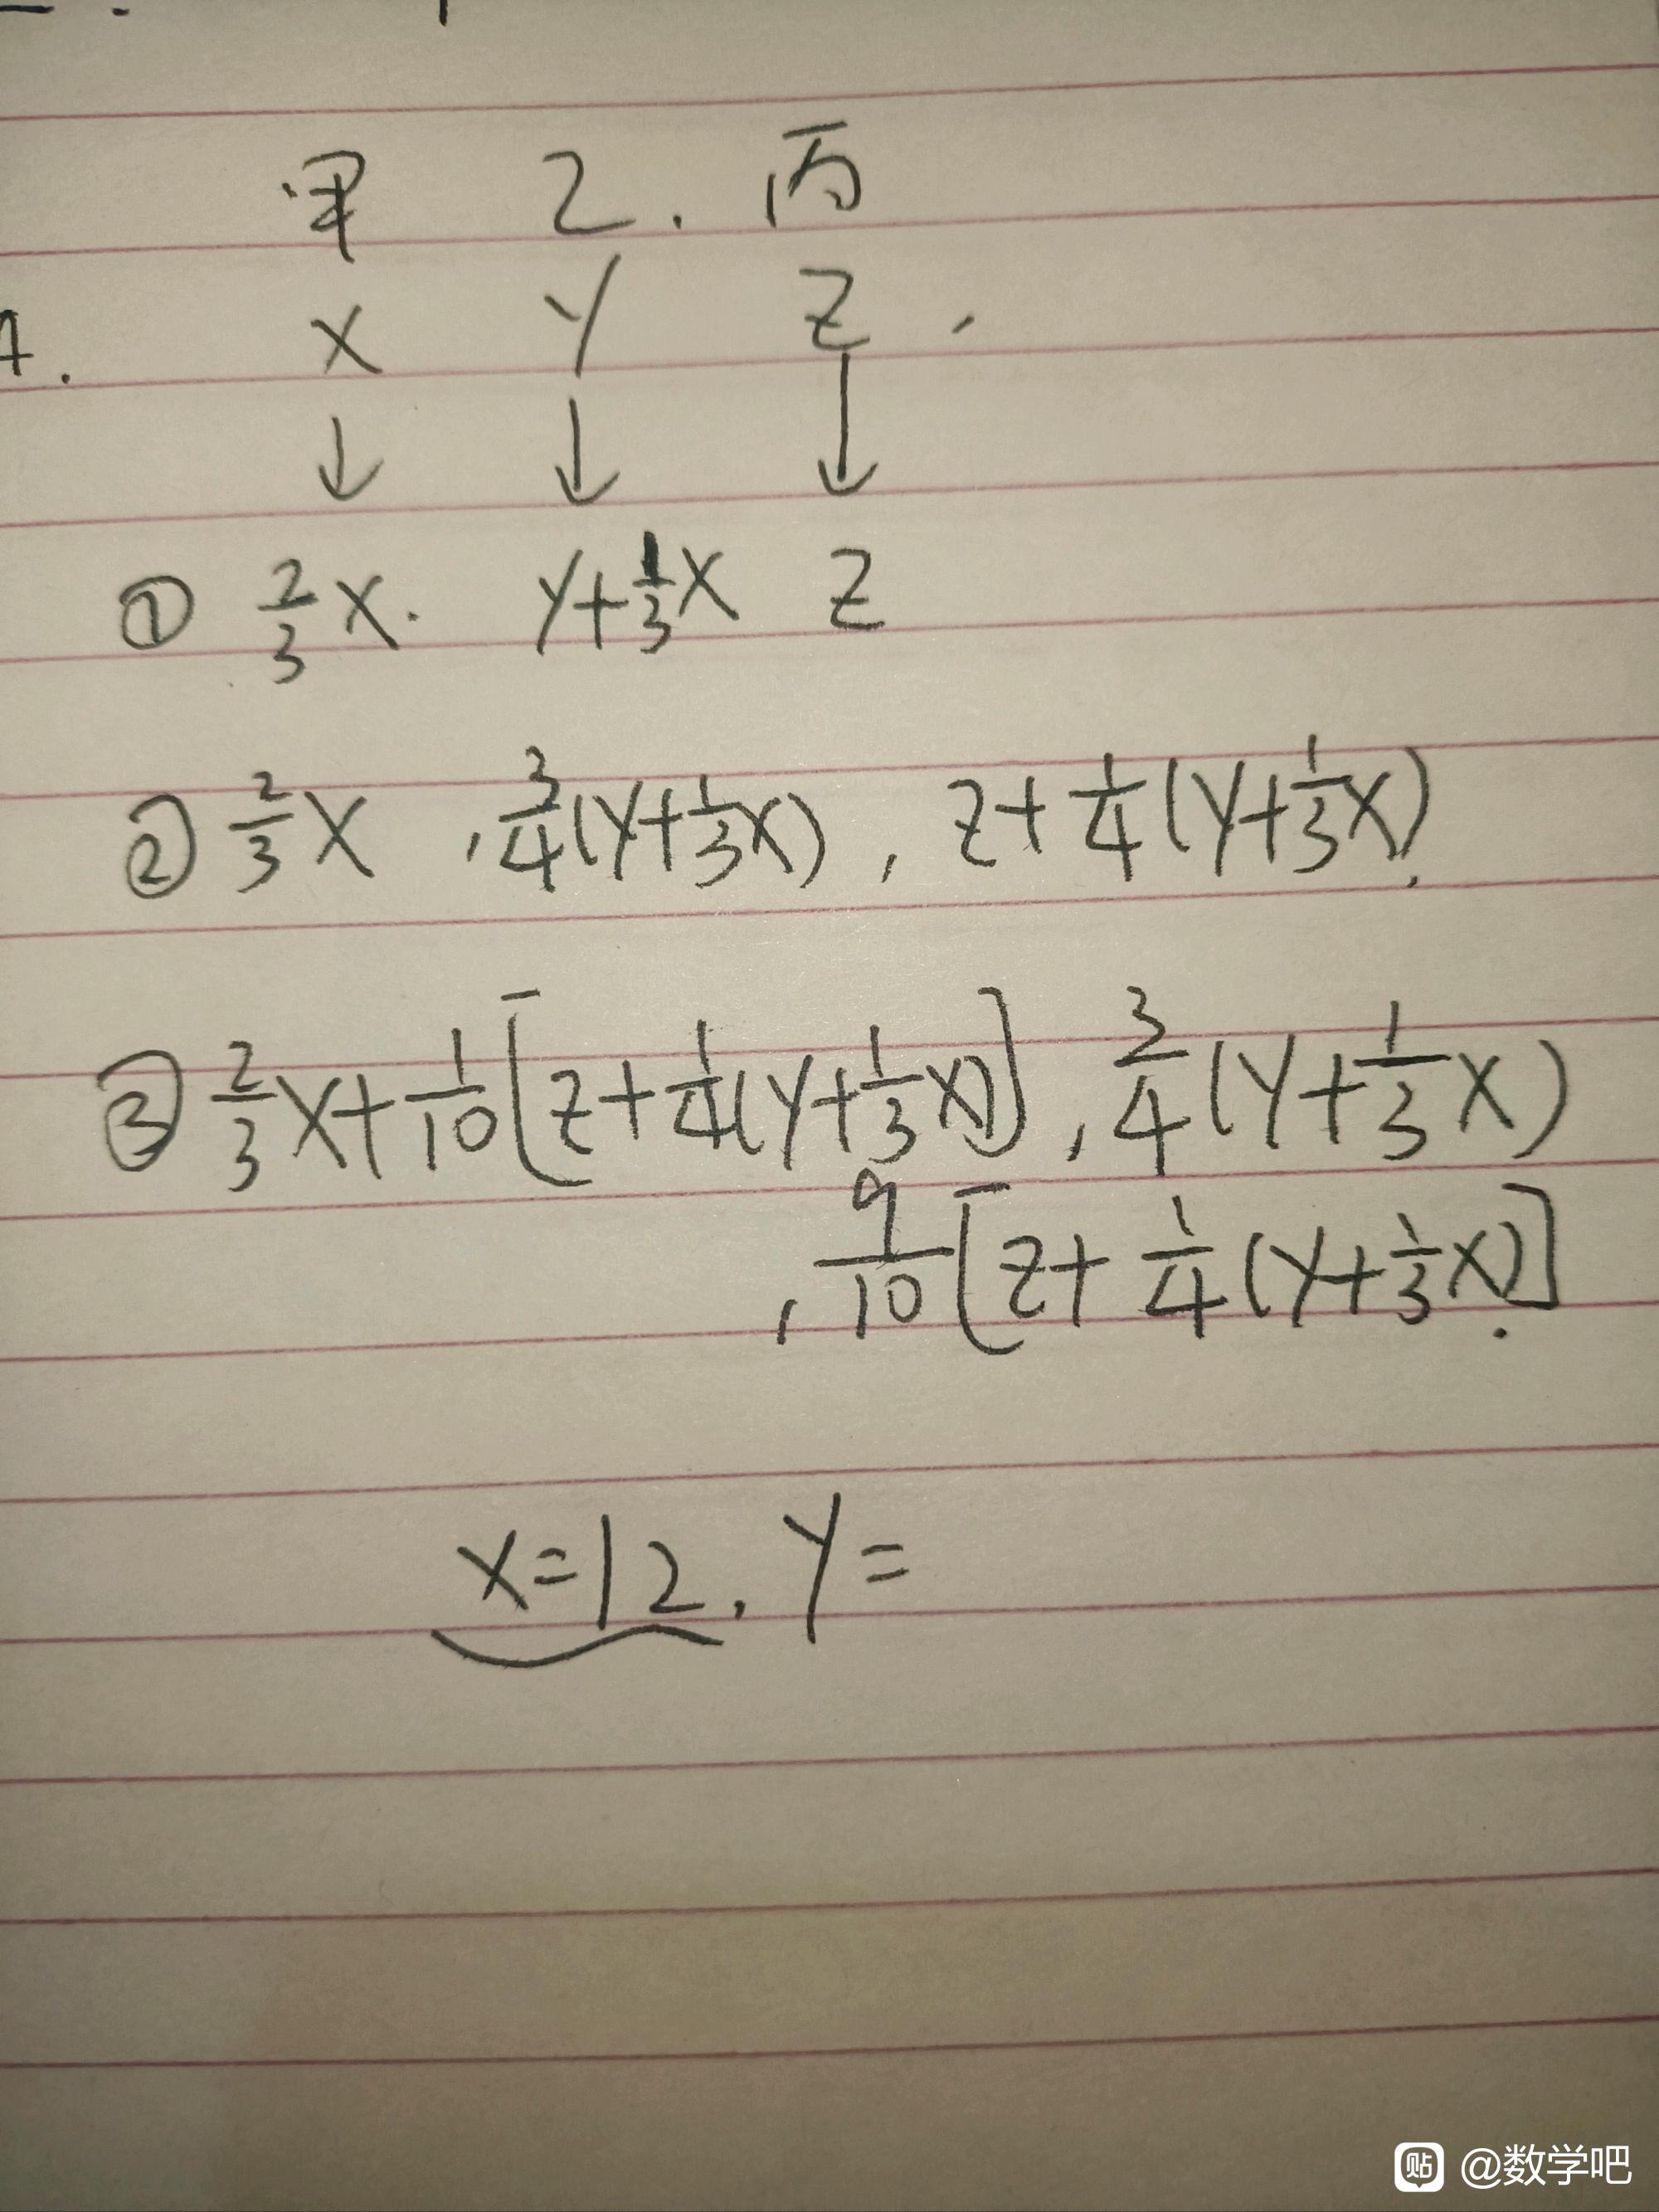 甲 乙. 丙
X Y Z,
↓ ↓ ↓
① 2/3 X. Y+1/3 X Z
② 2/3 X , 3/4(Y+1/3 X) , Z+1/4(Y+1/3 X).
③ 2/3 X+1/10[Z+1/4(Y+1/3 X)] , 3/4(Y+1/3 X)
, 9/10[Z+1/4(Y+1/3 X)].
X=12. Y=
贴 @数学吧